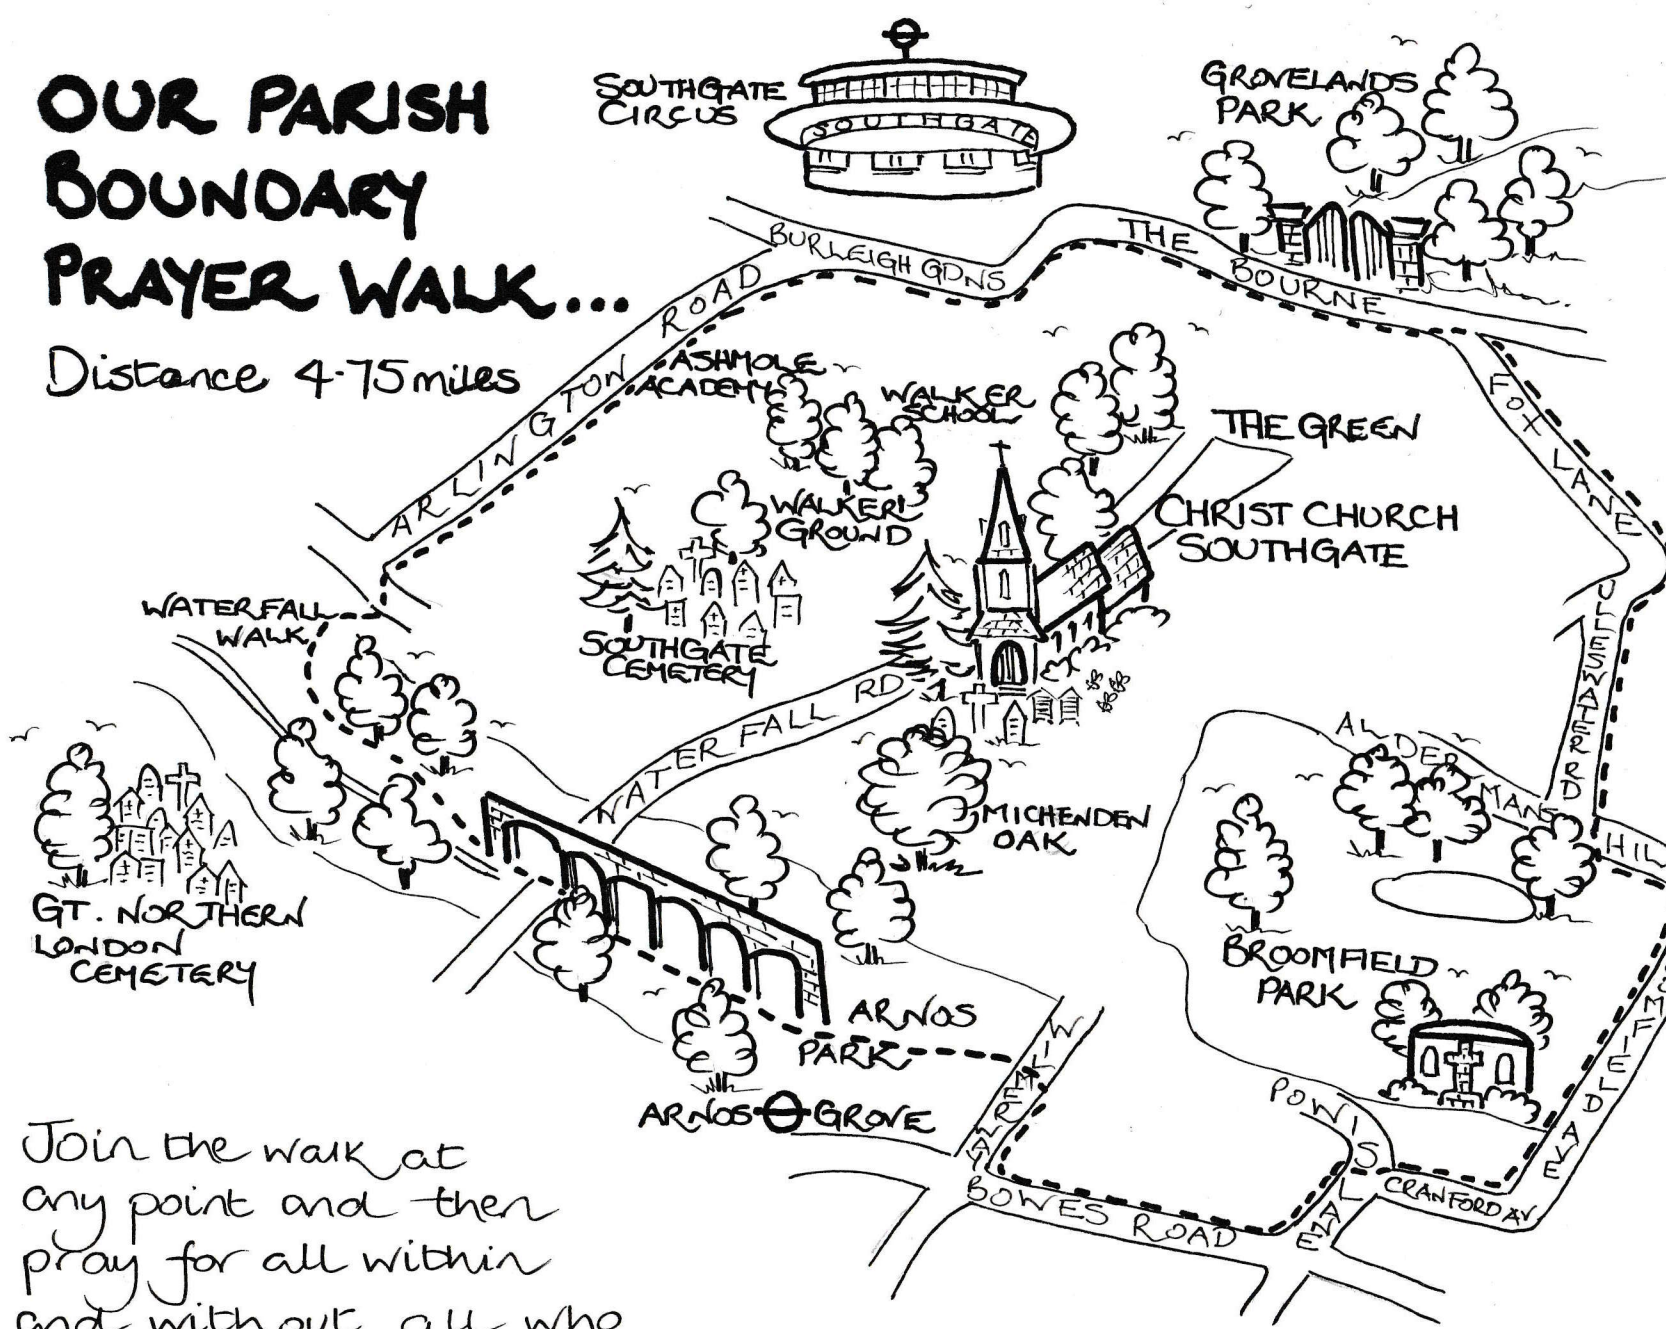 OUR PARISH
BOUNDARY
PRAYER WALK...
Distance 4.75 miles
SOUTHGATE
CIRCUS
SOUTHGATE
GROVELANDS
PARK
BURLEIGH GDNS
THE
BOURNE
ARLINGTON ROAD
ASHMOLE
ACADEMY
WALKER
SCHOOL
THE GREEN
FOX LANE
WALKER
GROUND
CHRIST CHURCH
SOUTHGATE
WATERFALL
WALK
SOUTHGATE
CEMETERY
ULLESWATER RD
WATER FALL RD
ALDERMANS HIL
MICHENDEN
OAK
GT. NORTHERN
LONDON
CEMETERY
BROOMFIELD
PARK
ARNOS
PARK
MFIELD AVE
ARNOS GROVE
POWIS
LANE
CRANFORD AV
BOWES ROAD
Join the walk at
any point and then
pray for all within
and without, all who